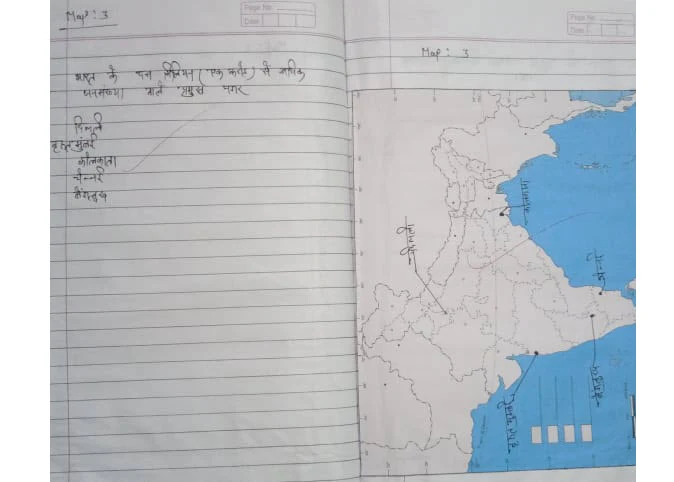 Map : 3
Page No
Date
भारत के दस मिलियन (एक करोड़) से अधिक
जनसंख्या वाले प्रमुख नगर
दिल्ली
वृहत मुंबई
कोलकाता
चेन्नई
बेंगलुरु
Page No
Date
Map : 3
कोलकाता
दिल्ली
चेन्नई
बेंगलुरु
वृहत मुंबई